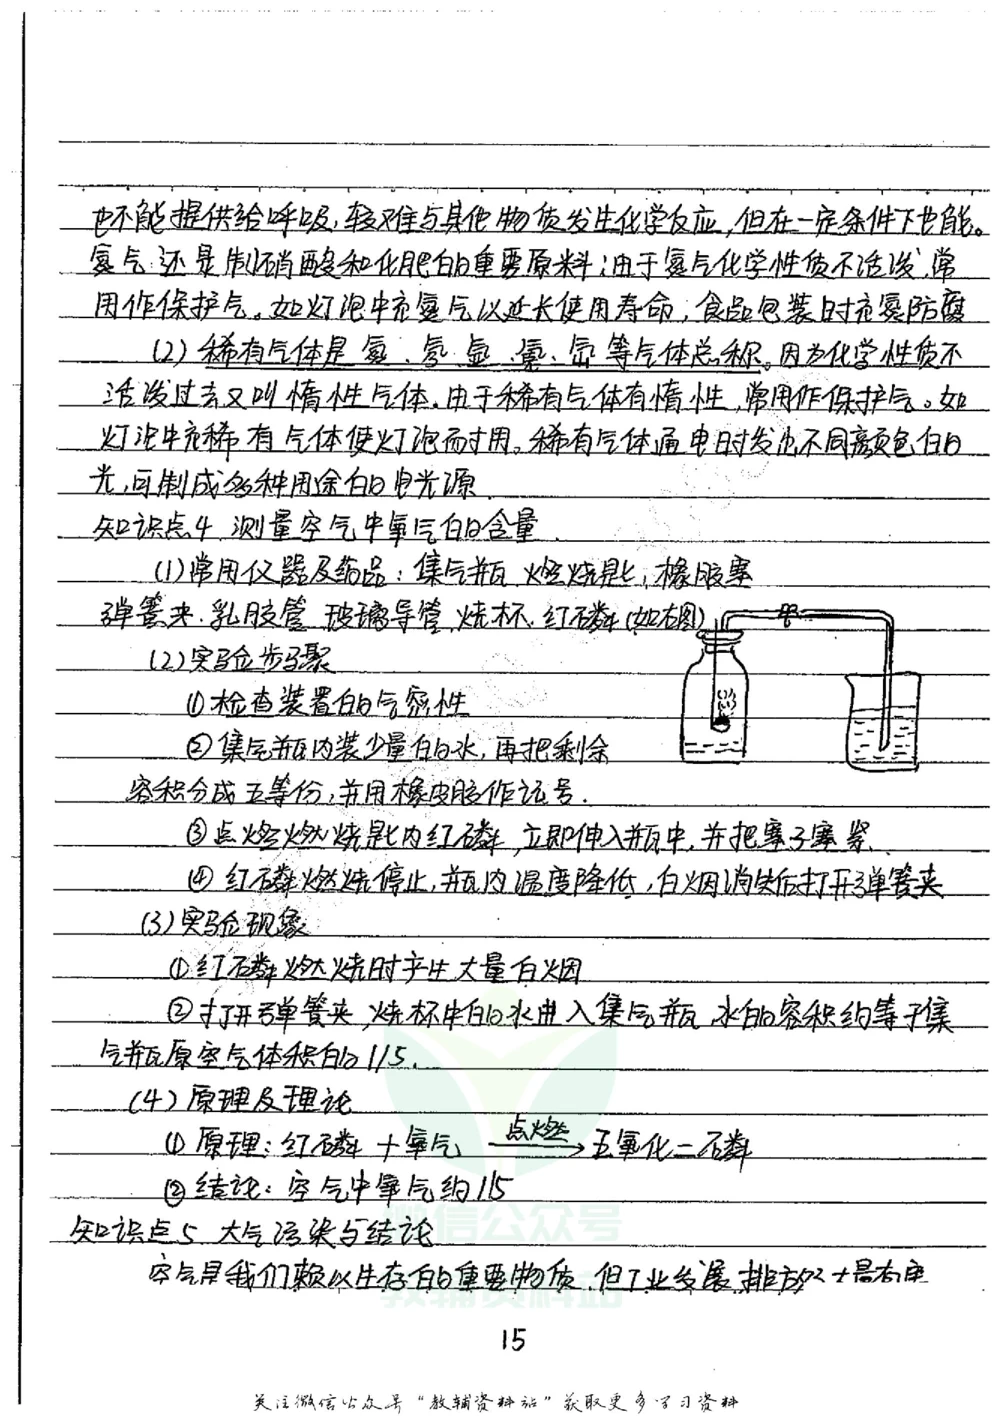 也不能提供给呼吸,较难与其他物质发生化学反应,但在一定条件下也能。
氮气还是制硝酸和化肥的重要原料;由于氮气化学性质不活泼,常
用作保护气。如灯泡中充氮气以延长使用寿命,食品包装时充氮防腐
(2)稀有气体是氦、氖、氩、氪、氙等气体总称。因为化学性质不
活泼过去又叫惰性气体。由于稀有气体有惰性,常用作保护气。如
灯泡中充稀有气体使灯泡耐用。稀有气体通电时发出不同颜色的
光,可制成多种用途的电光源
知识点4 测量空气中氧气的含量
(1)常用仪器及药品:集气瓶 燃烧匙,橡胶塞
弹簧夹.乳胶管 玻璃导管,烧杯.红磷(如右图)
(2)实验步骤
①检查装置的气密性
②集气瓶内装少量的水,再把剩余
容积分成五等份,并用橡皮胶作记号.
③点燃燃烧匙内红磷,立即伸入瓶中,并把塞子塞紧
④红磷燃烧停止,瓶内温度降低,白烟消失后打开弹簧夹
(3)实验现象
①红磷燃烧时产生大量白烟
②打开弹簧夹,烧杯中的水进入集气瓶,水的容积约等于集
气瓶原空气体积的1/5.
(4)原理及理论
①原理:红磷+氧气 点燃→ 五氧化二磷
②结论:空气中氧气约1/5
知识点5 大气污染与结论
空气是我们赖以生存的重要物质 但工业发展 排放
微信公众号
教辅资料站
15
关注微信公众号"教辅资料站"获取更多学习资料